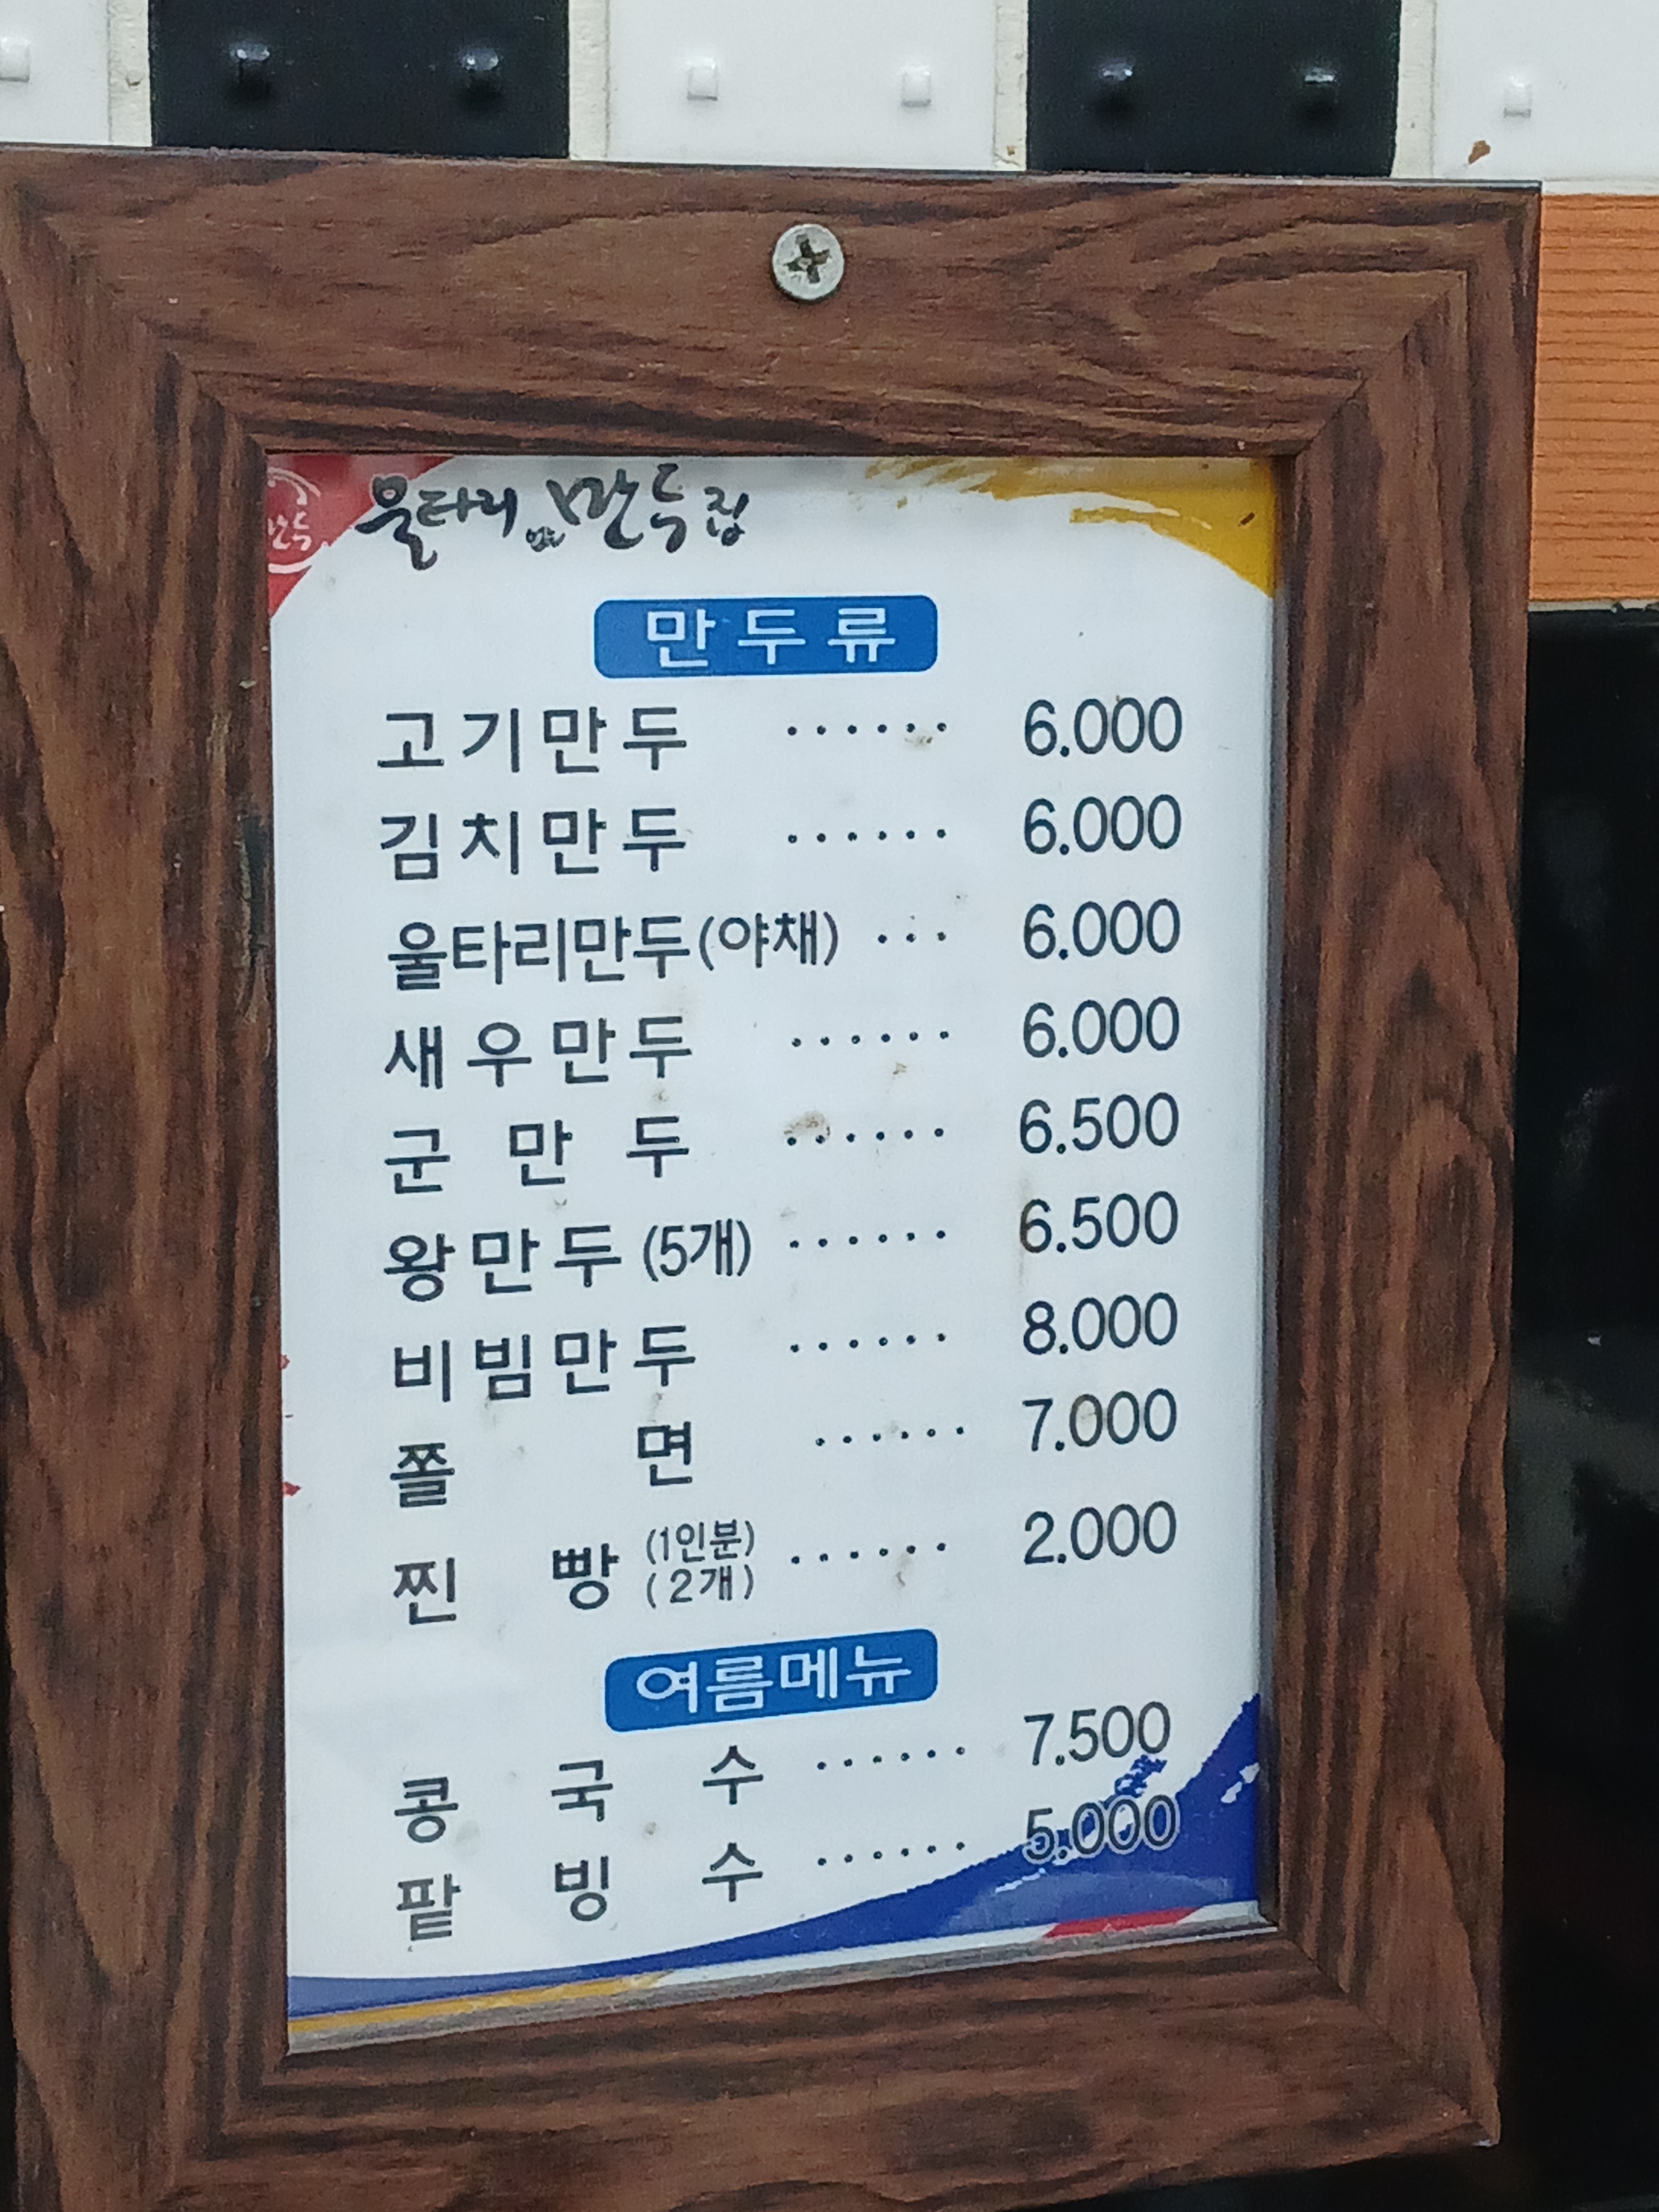 울타리 없는 만두집
만두류
고기만두 ...... 6.000
김치만두 ...... 6.000
울타리만두(야채) ... 6.000
새우만두 ...... 6.000
군만두 ...... 6.500
왕만두(5개) ...... 6.500
비빔만두 ...... 8.000
쫄면 ...... 7.000
찐빵 (1인분) (2개) ...... 2.000
여름메뉴
콩국수 ...... 7.500
팥빙수 ...... 5.000